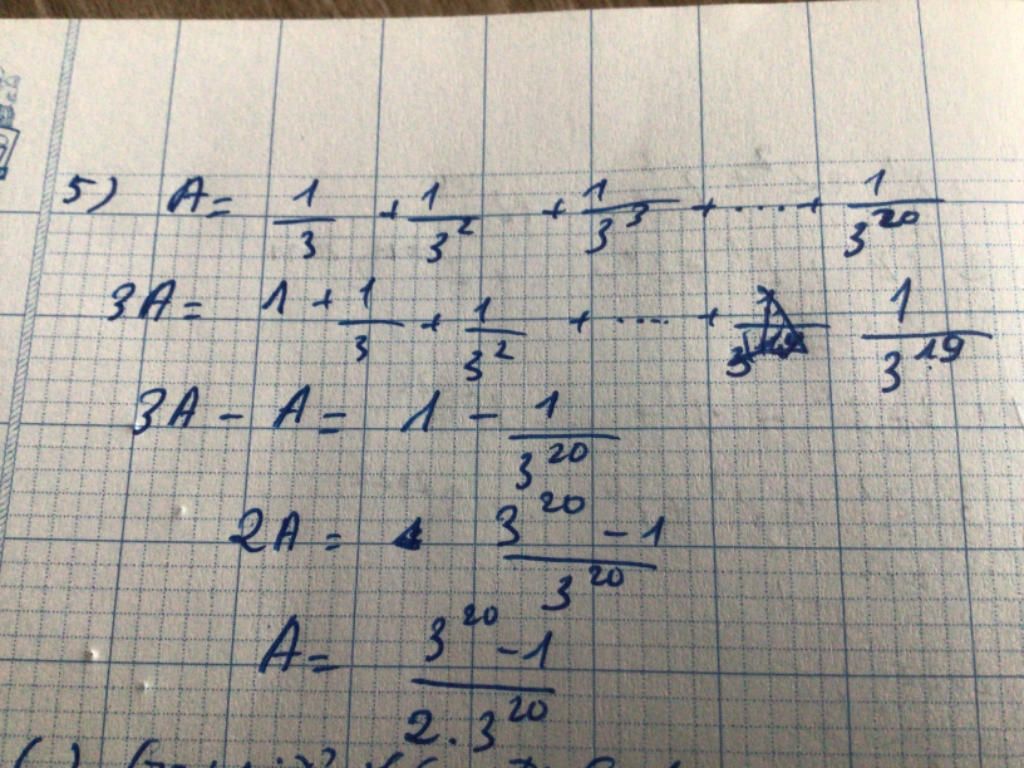 5) A = 1/3 + 1/3² + 1/3³ + .... + 1/3²⁰
3A = 1 + 1/3 + 1/3² + .... + 1/3¹⁹
3A - A = 1 - 1/3²⁰
2A = (3²⁰ - 1)/3²⁰
A = (3²⁰ - 1)/(2 . 3²⁰)